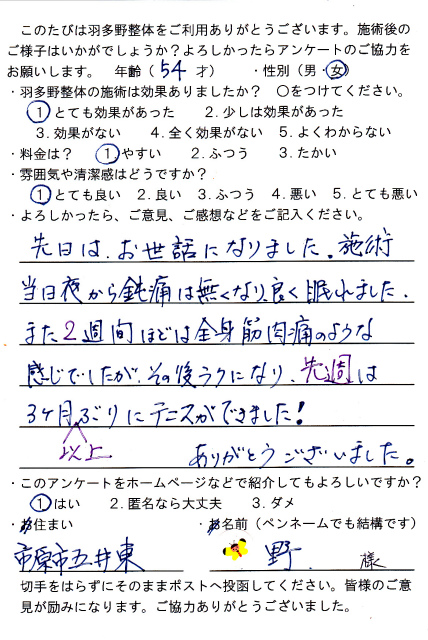 このたびは羽多野整体をご利用ありがとうございます。施術後の
ご様子はいかがでしょうか？よろしかったらアンケートのご協力を
お願いします。 年齢（ 54 才） ・性別（男・女）
・羽多野整体の施術は効果ありましたか？ ○をつけてください。
1 とても効果があった 2. 少しは効果があった
3. 効果がない 4. 全く効果がない 5. よくわからない
・料金は？ 1 やすい 2. ふつう 3. たかい
・雰囲気や清潔感はどうですか？
1 とても良い 2. 良い 3. ふつう 4. 悪い 5. とても悪い
・よろしかったら、ご意見、ご感想などをご記入ください。
先日は、お世話になりました。施術
当日夜から鈍痛は無くなり、良く眠れました。
また2週間ほどは全身筋肉痛のような
感じでしたが、その後ラクになり、先週は
3ケ月ぶりにテニスができました！
以上
ありがとうございました。
・このアンケートをホームページなどで紹介してもよろしいですか？
1 はい 2. 匿名なら大丈夫 3. ダメ
・お住まい ・お名前（ペンネームでも結構です）
市原市五井東 野. 様
切手をはらずにそのままポストへ投函してください。皆様のご意
見が励みになります。ご協力ありがとうございました。